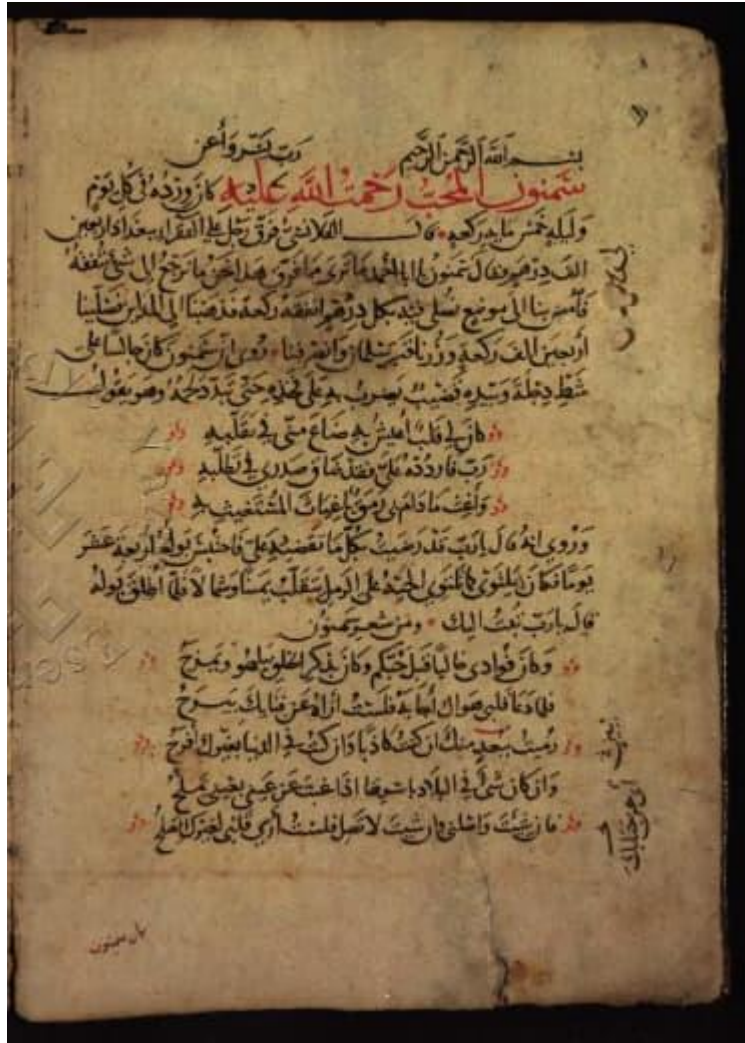 بسم الله الرحمن الرحيم رب يسر وأعن
سمنون المحب رحمت الله عليه كان ورده في كل يوم
وليلة خمس مايه ركعه قال القلانسي فرق رجل على الفقراء ببغداد اربعين
الف درهم وقال سمنون يا ابا احمد ما ترى ما فرق هذا نحن ما نرجع الى شي ننفقه
فامض بنا الى موضع نصلي فيه بكل درهم انفقه ركعة فذهبنا الى المداين فصلينا
أربعين الف ركعة وزرنا قبر سلمان وانصرفنا روى ان سمنون كان جالسا على
شط دجلة وبيده قضيب يضرب به على فخذه حتى تبدد لحمه وهو يقول
كان لي قلب أعيش به ضاع مني في تقلبه
رب فاردده علي فقد ضاق صدري في تطلبه
وأغث ما دام بي رمق يا غياث المستغيث به
وروى انه قال يا رب قد رضيت بكل ما تقضيه علي فاحتبس بوله أربعة عشر
يوما فكان يلتوي كما تلتوي الحية على الرمل يتقلب يمينا وشمالا فلما أطلق بوله
قال يا رب تبت اليك ومن شعر سمنون
وكان فؤادي خاليا قبل حبكم وكان بذكر الخلق يلهو ويمزح
فلما دعا قلبي هواك أجابه فلست أراه عن فنايك يبرح
رميت ببعد منك ان كنت كاذبا وان كنت في الدنيا بغيرك أفرح
وان كان شي في البلاد باسرها اذا غبت عن عيني بعيني يملح
فان شئت واصلني وان شيت لا تصل فلست أرى قلبي لغيرك يصلح